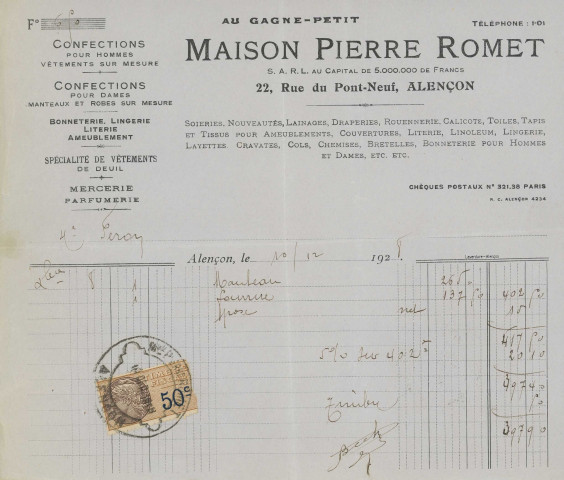 F°
AU GAGNE-PETIT
TÉLÉPHONE : 1-01
MAISON PIERRE ROMET
S. A. R. L. AU CAPITAL DE 5.000.000 DE FRANCS
22, RUE DU PONT-NEUF, ALENÇON
CONFECTIONS
POUR HOMMES
VÊTEMENTS SUR MESURE
CONFECTIONS
POUR DAMES
MANTEAUX ET ROBES SUR MESURE
BONNETERIE, LINGERIE
LITERIE
AMEUBLEMENT
SPÉCIALITÉ DE VÊTEMENTS
DE DEUIL
MERCERIE
PARFUMERIE
SOIERIES, NOUVEAUTÉS, LAINAGES, DRAPERIES, ROUENNERIE, CALICOTE, TOILES, TAPIS
ET TISSUS POUR AMEUBLEMENTS, COUVERTURES, LITERIE, LINOLEUM, LINGERIE,
LAYETTES CRAVATES, COLS, CHEMISES, BRETELLES, BONNETERIE POUR HOMMES
ET DAMES, ETC. ETC.
CHÈQUES POSTAUX N° 321.38 PARIS
R. C. ALENÇON 4234
Alençon, le 10/12 1928
8 1 Manteau 265
1 fourrure 137 50 402 50
pose net 15
417 50
5% sur 402 50 20 10
397 40
Timbre 50
397 90
50c